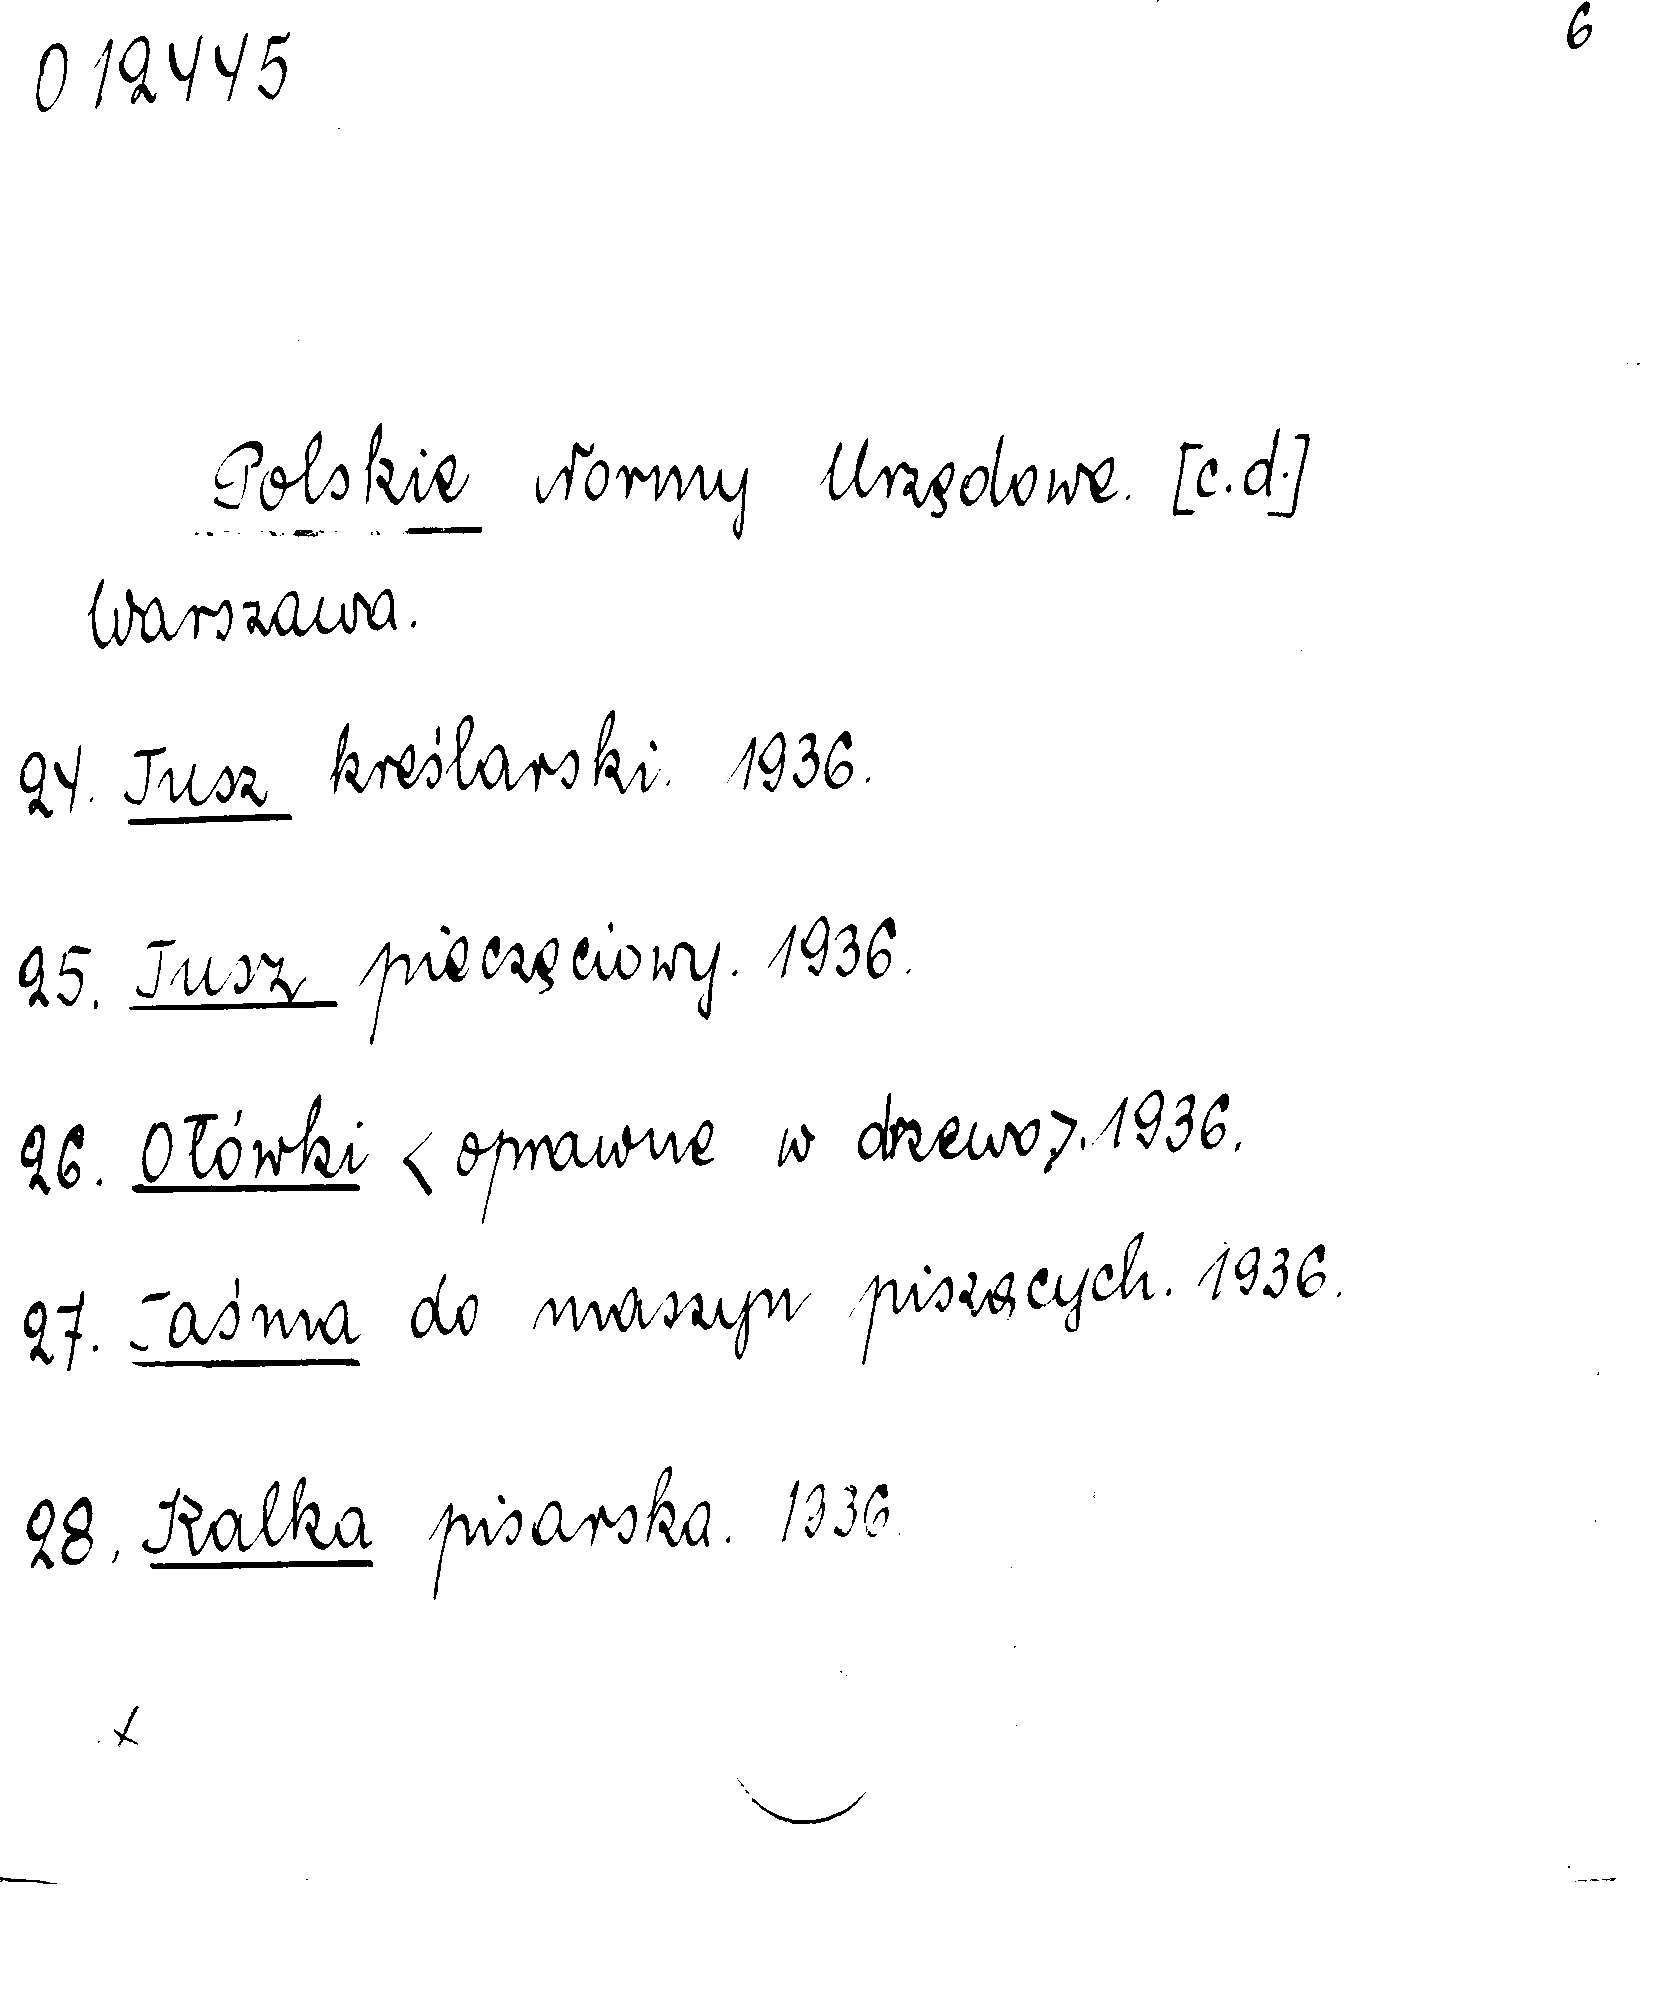 012445
6
Polskie Normy Urzędowe. [c.d.]
Warszawa.
24. Tusz kreślarski. 1936.
25. Tusz pieczęciowy. 1936.
26. Ołówki <oprawne w drzewo>. 1936.
27. Taśma do maszyn piszących. 1936.
28. Kalka pisarska. 1936.
x